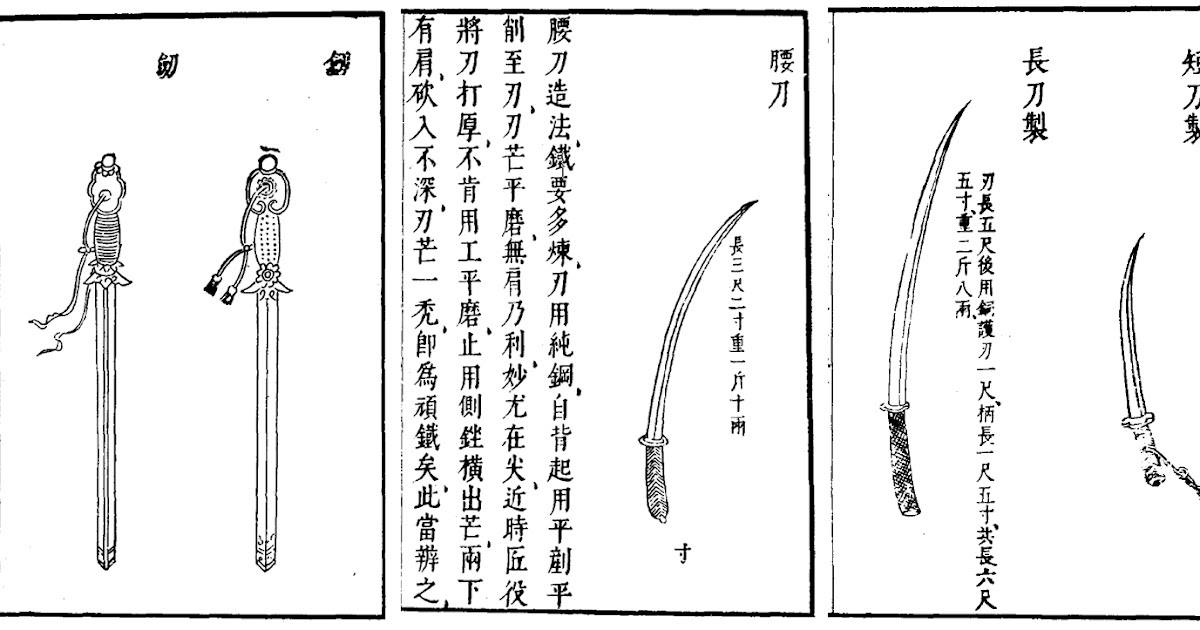 短刀製
長刀製
刃長五尺後用銅護刃一尺、柄長一尺五寸、共長六尺
五寸、重二斤八兩、
腰刀
長三尺二寸重一斤十兩
寸
腰刀造法、鐵要多煉、刃用純鋼、自背起用平剷平
削至刃、刃芒平磨、無肩乃利、妙尤在尖、近時匠役
將刃打厚、不肯用工平磨、止用側銼橫出芒、兩下
有肩、砍入不深、刃芒一禿、即為頑鐵矣、此當辨之、